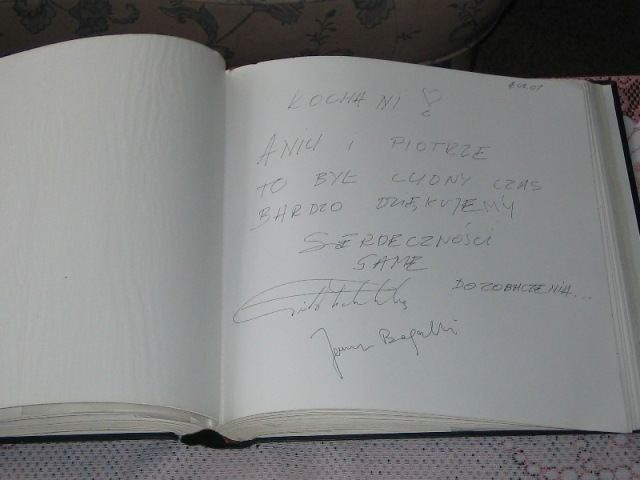 KOCHANI
ANIU I PIOTRZE
TO BYŁ CUDNY CZAS
BARDZO DZIĘKUJEMY
SERDECZNOŚCI
SAME
DO ZOBACZENIA...